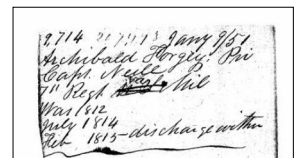 2,714 Jany 9/51
Archibald Forgey. Pri
Capt. Neill
7th Regt Mil
War 1812
July 1814
Feb 1815 - discharge within